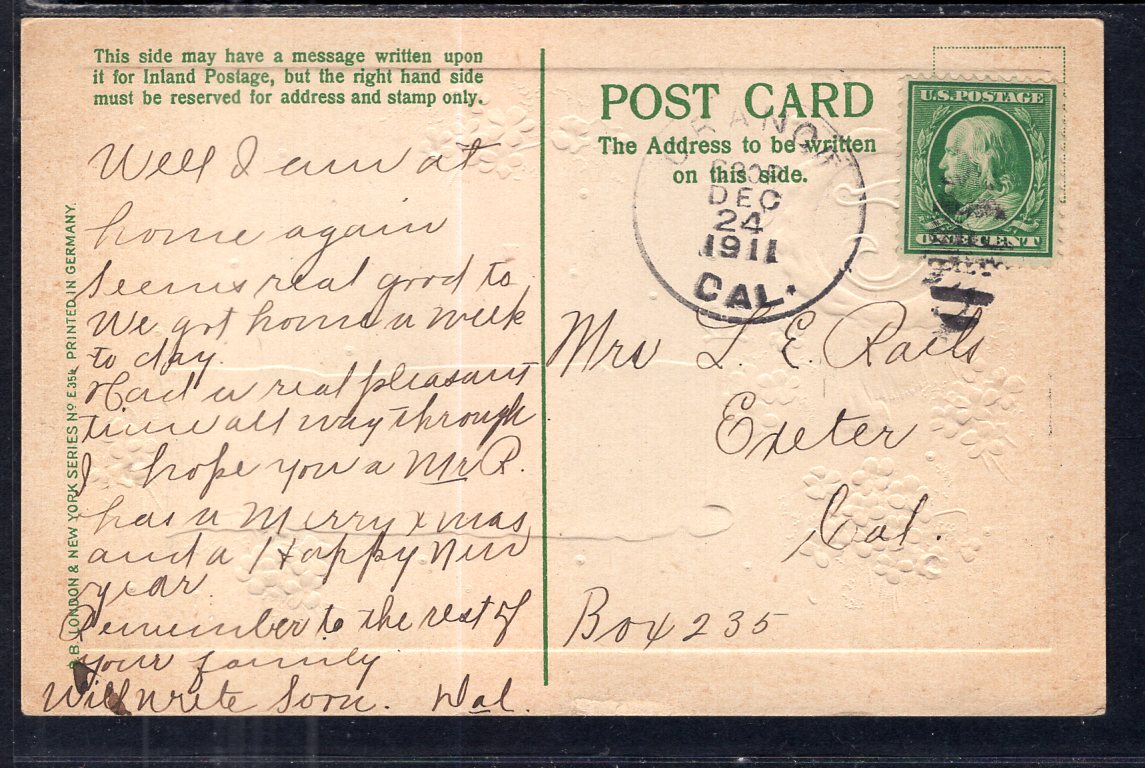 This side may have a message written upon
it for Inland Postage, but the right hand side
must be reserved for address and stamp only.
Well I am at
home again
Seems real good to
We got home a week
to day.
Had a real pleasant
time all way through
I hope you a Mr R.
has a Merry Xmas
and a Happy New
year.
Remember to the rest of
your family
Will write Soon. Dal.
B. LONDON & NEW YORK SERIES No E.354 PRINTED IN GERMANY.
POST CARD
The Address to be written
on this side.
ORANGE
DEC
24
1911
CAL.
U.S. POSTAGE
ONE CENT
Mrs L. E. Rails
Exeter
Cal.
Box 235